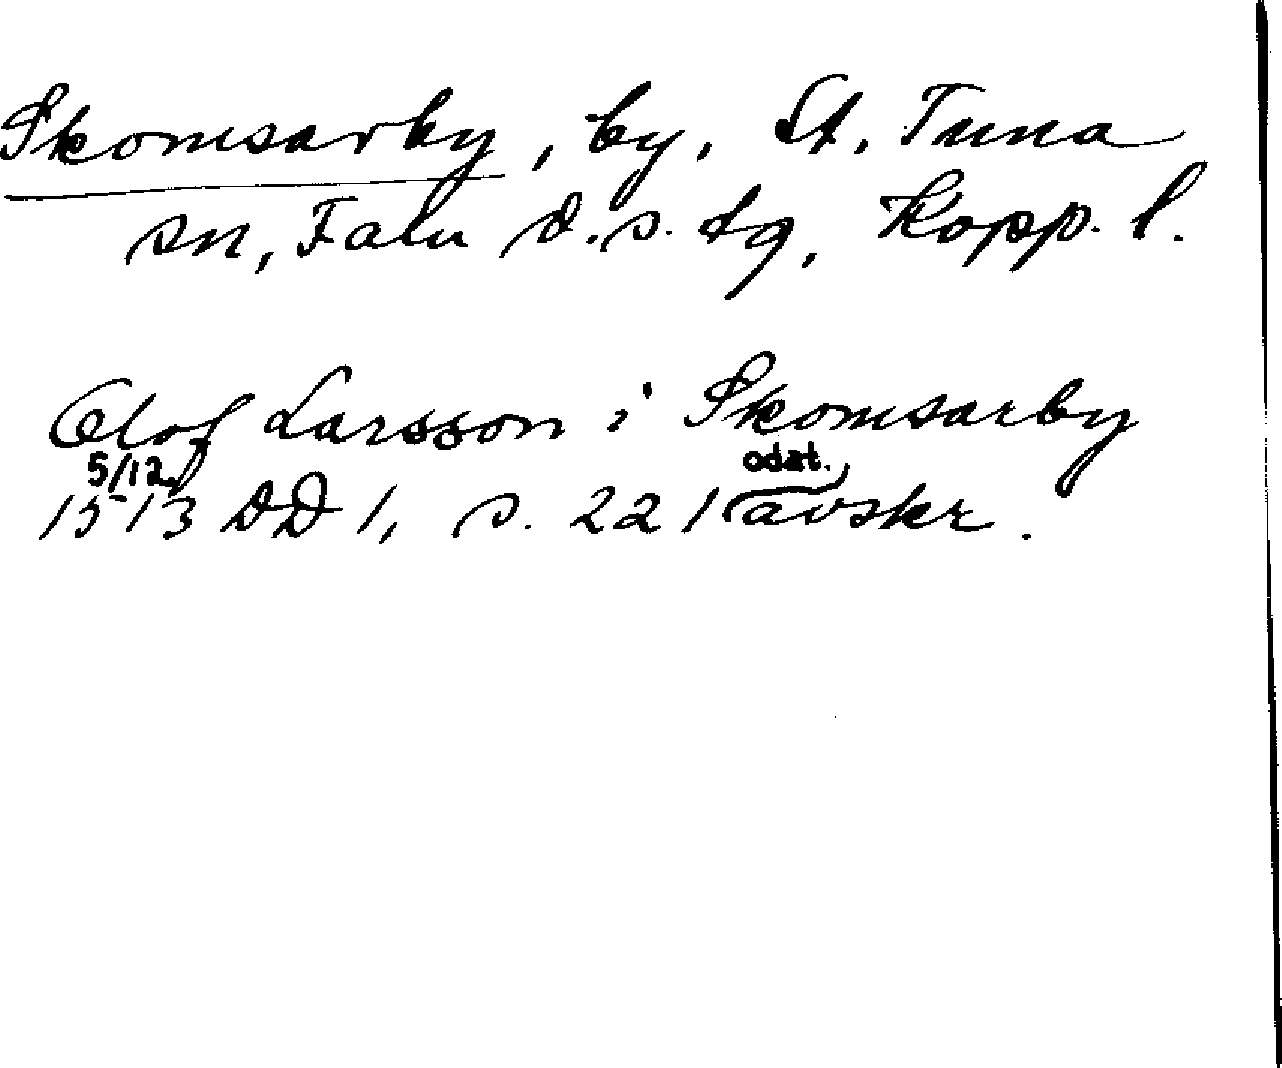 Skomsarby, by, St. Tuna
sn, Falu d.s. fg, Kopp. l.
Olof Larsson i Skomsarby
5/12 odat.,
1513 DD 1, s. 221 avskr.